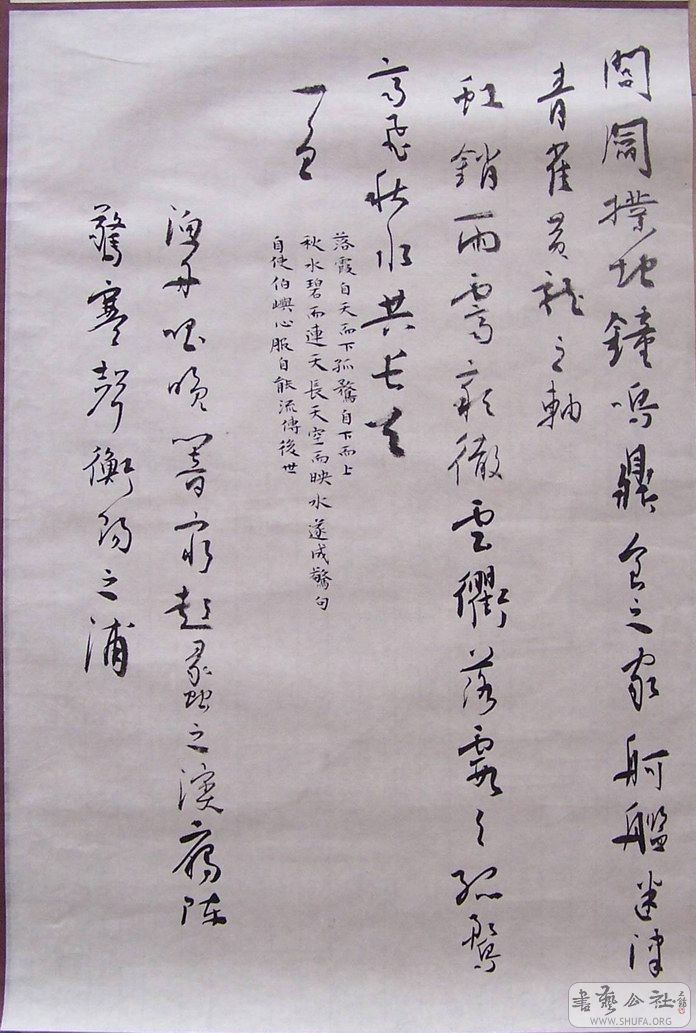 閭閻撲地鐘鳴鼎食之家舸艦迷津
青雀黃龍之軸
虹銷雨霽彩徹雲衢落霞与孤鶩
齊飛秋水共長天
一色
落霞自天而下孤鶩自下而上
秋水碧而連天長天空而映水遂成驚句
自使伯嶼心服自能流傳後世
漁舟唱晚響窮彭蠡之濱雁陣
驚寒聲衡陽之浦
書藝公社
WWW.SHUFA.ORG